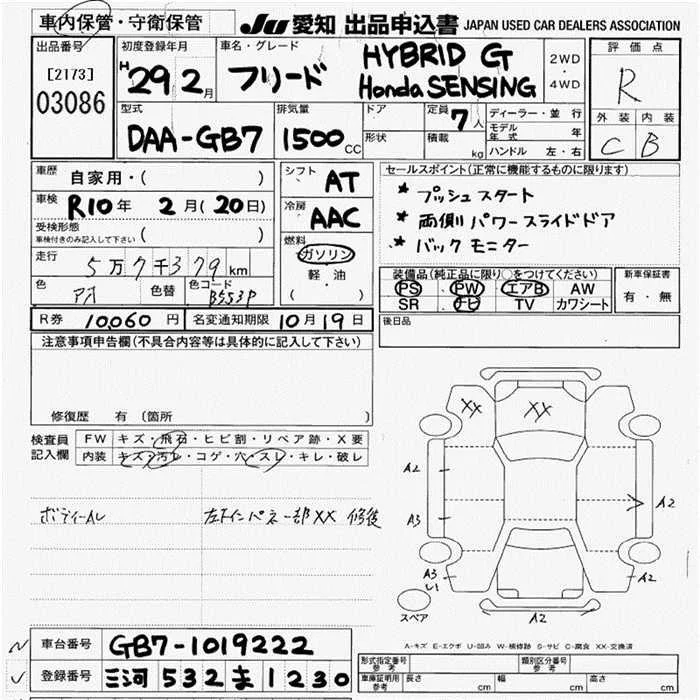 車内保管・守衛保管 JU 愛知 出品申込書 JAPAN USED CAR DEALERS ASSOCIATION
出品番号
[2173]
03086
初度登録年月
H 29 2月
車名・グレード
フリード
HYBRID G
Honda SENSING
2WD
・
4WD
評価点
R
外装 内装
C B
型式
DAA-GB7
排気量
1500cc
ドア
形状
定員
7人
積載
kg
ディーラー・並行
モデル年式 年
ハンドル 左・右
車歴
自家用・( )
車検
R10年 2月(20日)
受検形態
車検付きのみ記入して下さい ( )
走行
5万7千379km
色
色替
色コード
B553P
シフト
AT
冷房
AAC
燃料
ガソリン
軽油
( )
セールスポイント(正常に機能するものに限ります)
* プッシュスタート
* 両側パワースライドドア
* バックモニター
装備品(純正品に限り○をつけてください)
PS PW エアB AW
SR ナビ TV カワシート
新車保証書
有・無
後日品
R券 10,060円 名変通知期限 10月19日
注意事項申告欄(不具合内容等は具体的に記入して下さい)
修復歴 有 (箇所 )
検査員
記入欄
FW キズ・飛石・ヒビ割・リペア跡・X要
内装 キズ・汚レ・コゲ・穴・スレ・キレ・破レ
左インパネ一部XX 修後
XX XX
A2
A3
A2
A3
U1
A2
A2
スペア
A-キズ E-エクボ U-凹み W-補修跡 S-サビ C-腐食 XX-交換済
車台番号 GB7-1019222
登録番号 三河 532 ま 1230
形式指定番号
参考
類別区分番号
参考
車庫証明用
参考
長さ cm 幅 cm 高さ cm